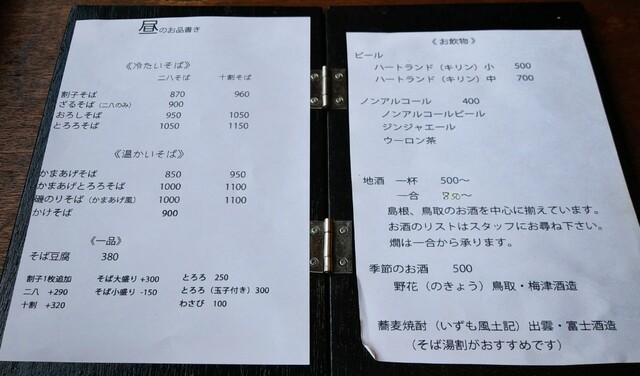 昼のお品書き
《冷たいそば》
二八そば 十割そば
割子そば 870 960
ざるそば (二八のみ) 900
おろしそば 950 1050
とろろそば 1050 1150
《温かいそば》
かまあげそば 850 950
かまあげとろろそば 1000 1100
磯のりそば (かまあげ風) 1000 1100
かけそば 900
《一品》
そば豆腐 380
割子1枚追加 そば大盛り +300 とろろ 250
二八 +290 そば小盛り -150 とろろ (玉子付き) 300
十割 +320 わさび 100
《お飲物》
ビール
ハートランド (キリン) 小 500
ハートランド (キリン) 中 700
ノンアルコール 400
ノンアルコールビール
ジンジャエール
ウーロン茶
地酒 一杯 500〜
一合 850〜
島根、鳥取のお酒を中心に揃えています。
お酒のリストはスタッフにお尋ね下さい。
燗は一合から承ります。
季節のお酒 500
野花 (のきょう) 鳥取・梅津酒造
蕎麦焼酎 (いずも風土記) 出雲・富士酒造
(そば湯割がおすすめです)